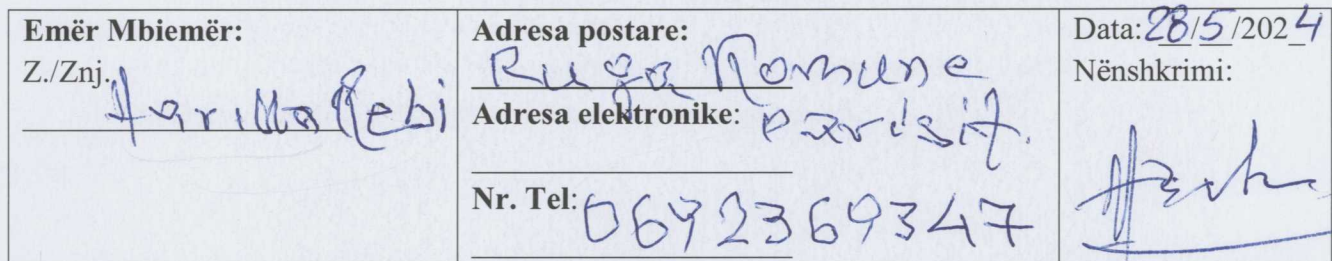 Emër Mbiemër:
Z./Znj.
Adresa postare:
Rruga Komuna
Parisit.
Adresa elektronike:
Nr. Tel: 0692369347
Data: 28/5/2024
Nënshkrimi: